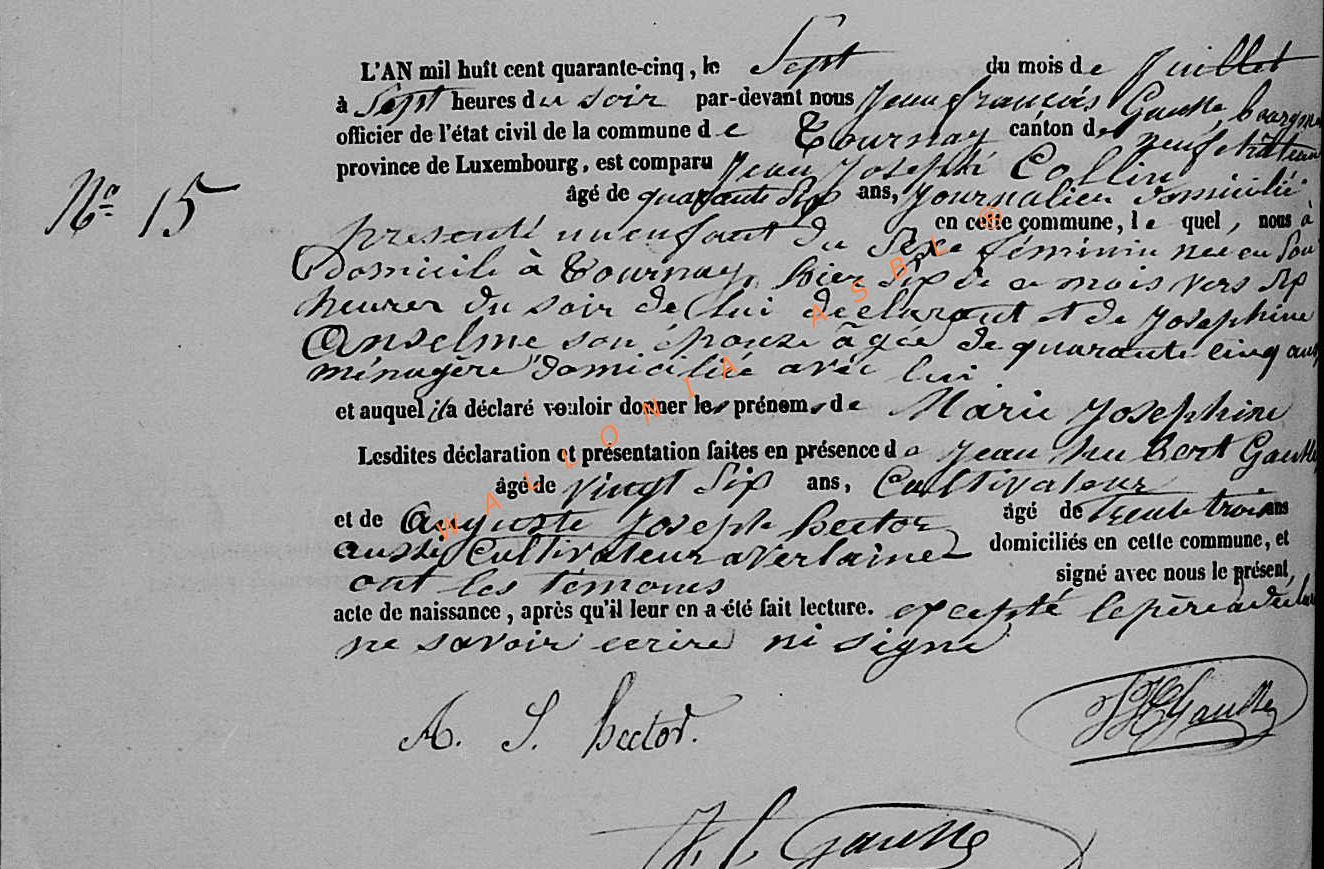 L'AN mil huit cent quarante-cinq, le Sept du mois de Juillet
à Sept heures du soir par-devant nous Jean françois Gausse, bourgme
officier de l'état civil de la commune de Tournay canton de neufchâteau
province de Luxembourg, est comparu Jean Joseph Collin
N° 15
âgé de quarante six ans, Journalier domicilié
en cette commune, le quel, nous à
présenté un enfant du Sexe féminin née en Son
Domicile à Tournay, hier six de ce mois vers six
heures du soir de lui déclarant et de Josephine
Anselme son épouse âgée de quarante cinq ans
ménagère domiciliée avec lui
et auquel il a déclaré vouloir donner les prénoms de Marie Josephine
Lesdites déclaration et présentation faites en présence de Jean hubert Gausse
âgé de vingt Six ans, Cultivateur
et de Auguste Joseph hector âgé de trente trois ans
aussi Cultivateur a Verlaine domiciliés en cette commune, et
ont les témoins signé avec nous le présent
acte de naissance, après qu'il leur en a été fait lecture. excepté le père
ne savoir écrire ni signé
A. J. hector.
JH Gausse
J. f. Gausse
WALLONIA ASBL ©